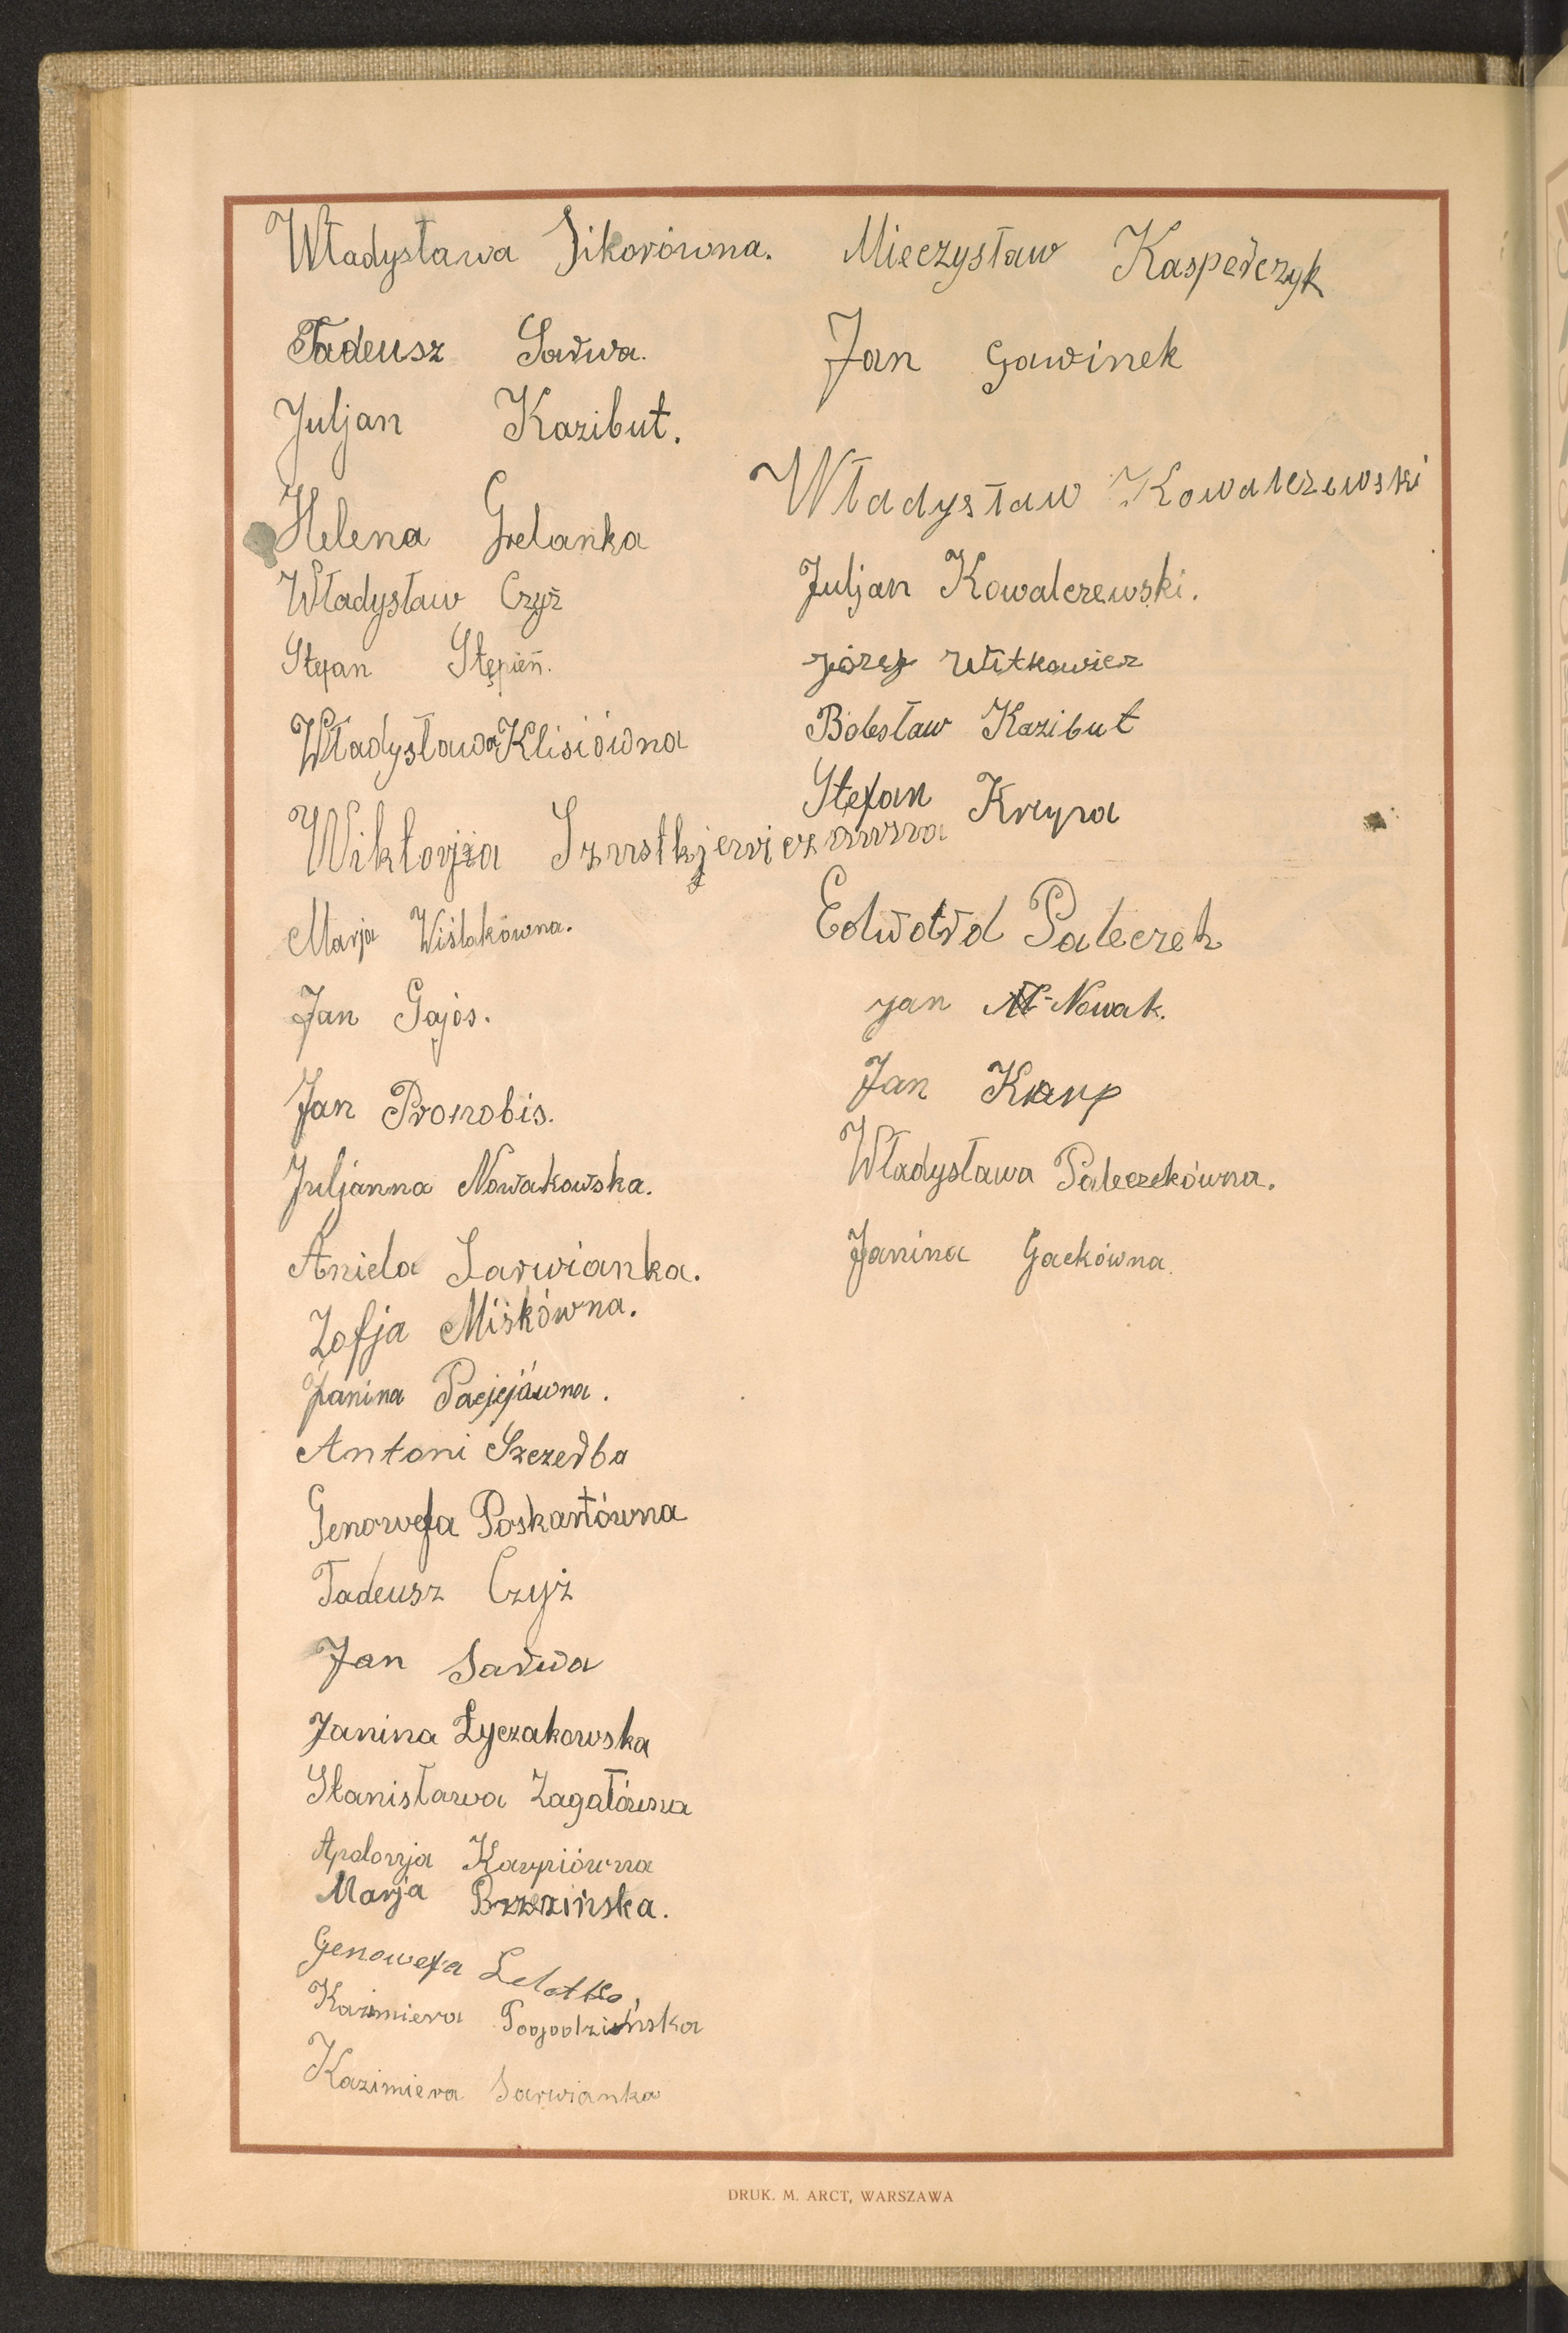 Władysława Sikorówna.
Tadeusz Sarwa.
Juljan Kazibut.
Helena Grelanka
Władysław Czyż
Stefan Stępień.
Władysława Klisiówna
Wiktorja
Marja Wiślakówna.
Jan Gajos.
Jan Pronobis.
Juljanna Nowakowska.
Aniela Sarwianka.
Zofja Miśkówna.
Janina
Antoni Szczerba
Genowefa Poskartówna
Tadeusz Czyż
Jan Sarwa
Janina Łyczakowska
Stanisława Zagałówna
Apolonja Karpiówna
Marja Brzezińska.
Genowefa
Kazimiera Pogodzińska
Kazimiera Sarwianka
Mieczysław Kasperczyk
Jan Gawinek
Władysław Kowalczewski
Juljan Kowalczewski.
Józef Witkowicz
Bolesław Kazibut
Stefan Krzypa
Edward Paleczek
Jan Nowak.
Jan Karp
Władysława Paleczekówna.
Janina Gackówna.
DRUK. M. ARCT, WARSZAWA